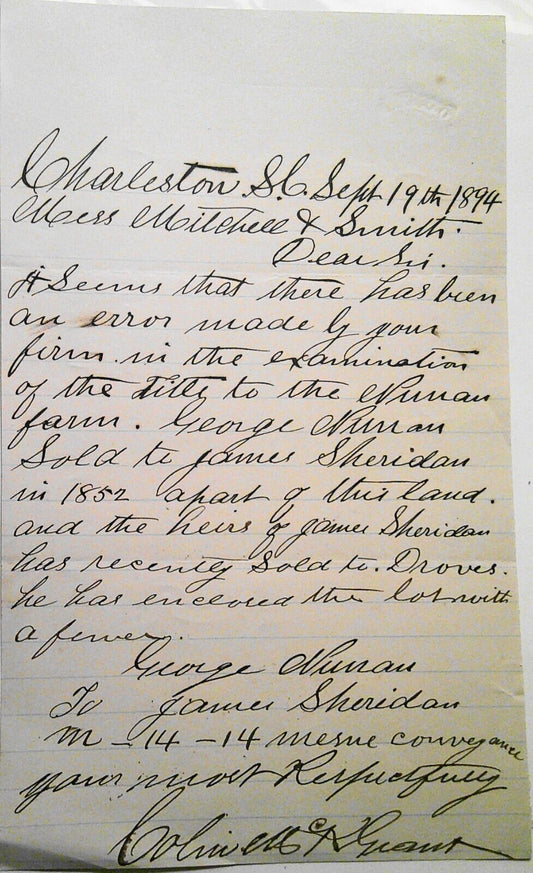 Charleston S.C. Sept 19th 1894
Mess Mitchell & Smith.
Dear Sir.
it Seems that there has been
an error made by your
firm in the examination
of the title to the Nunan
farm. George Nunan
Sold to James Sheridan
in 1852 apart of this land.
and the heirs of James Sheridan
has recently sold to Droves.
he has enclosed the lot with
a
George Nunan
To James Sheridan
M - 14 - 14 mesne conveyance
your most Respectfully
Mc Grant